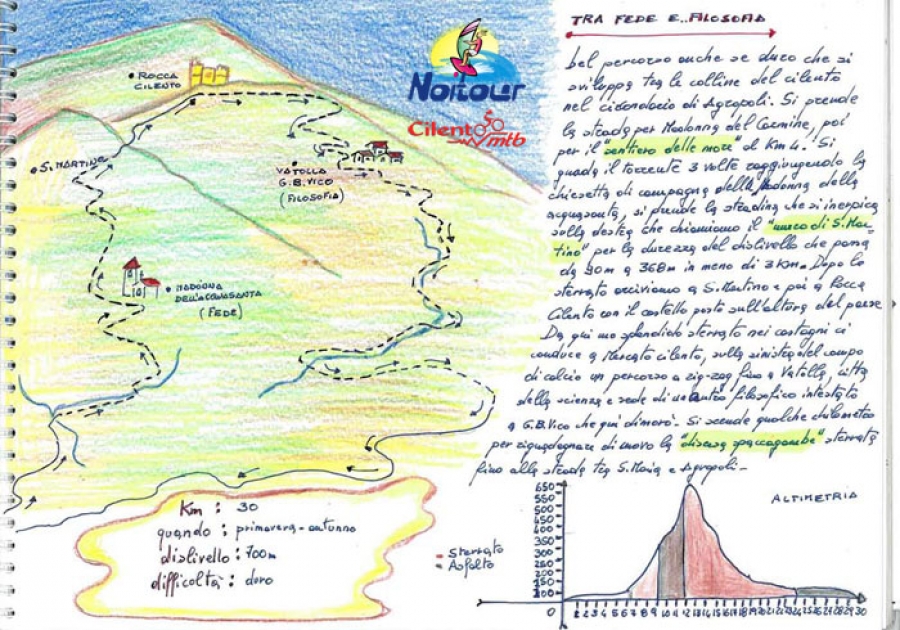 TRA FEDE E.. FILOSOFIA
bel percorso anche se duro che si
sviluppa tra le colline del cilento
nel circondario di Agropoli. Si prende
la strada per Madonna del Carmine, poi
per il "sentiero delle more" al Km 4. Si
guada il torrente 3 volte raggiungendo la
chiesetta di campagna della Madonna della
acquasanta, si prende la stradina che si inerpica
sulla destra che chiamiamo il "muro di S. Mar-
tino" per la durezza del dislivello che passa
da 90m a 368m in meno di 3 Km. Dopo lo
sterrato arriviamo a S. Martino e poi a Rocca
Cilento con il castello posto sull'altura del paese
Da qui uno splendido sterrato nei castagni ci
conduce a Mercato cilento, sulla sinistra del campo
di calcio un percorso a zig-zag fino a Vatolla, città
della scienza e sede di un centro filosofico intestato
a G.B. Vico che qui dimorò. Si scende qualche chilometro
per riguadagnare di nuovo la "discesa spaccagambe" sterrata
fino alla strada tra S. Maria e Agropoli.
Noitour
Cilento mtb
ROCCA
CILENTO
S. MARTINO
VATOLLA
G.B. VICO
(FILOSOFIA)
MADONNA
DELL'ACQUASANTA
(FEDE)
Km : 30
quando : primavera - autunno
dislivello : 700m
difficoltà : duro
Sterrato
Asfalto
ALTIMETRIA
650
600
550
500
450
400
350
300
250
200
150
100
0
1 2 3 4 5 6 7 8 9 10 11 12 13 14 15 16 17 18 19 20 21 22 23 24 25 26 27 28 29 30